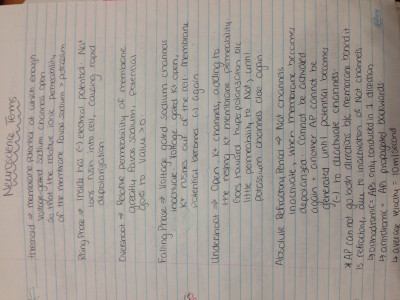 Neuroscience Terms
Threshold ⇒ membrane potential at which enough
voltage-gated sodium channels open
so that the relative ionic permeability
of the membrane favors sodium > potassium
Rising Phase ⇒ Inside has (-) electrical potential. Na+
ions rush into cell, causing rapid
depolarization
Overshoot ⇒ Relative permeability of membrane
greatly favors sodium, potential
goes to value > 0
Falling Phase ⇒ Voltage gated sodium channels
inactivate, Voltage gated K+ open,
K+ rushes out of the cell. Membrane
potential becomes (-) again
Undershoot ⇒ Open K+ channels, adding to
the resting membrane permeability.
Goes toward hyperpolarization b/c
little permeability to Na+, until
potassium channels close again
Absolute Refractory Period ⇒ Na+ channels
inactivate when membrane becomes
depolarized. Cannot be activated
again + another AP cannot be
generated until potential becomes
(-) to deactivate channels
* AP cannot go back direction b/c membrane behind it
is refractory, due to inactivation of Na+ channels
↳ orthodromic = APs only conducted in 1 direction
↳ antidromic = AP propagated backwards
↳ average velocity = 10 m/second